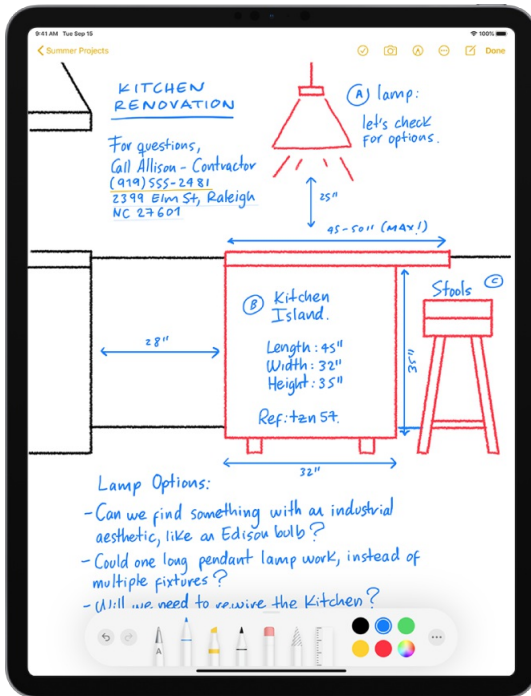 9:41 AM Tue Sep 15
100%
Summer Projects
Done
KITCHEN
RENOVATION
For questions,
Call Allison - Contractor
(919) 555-2481
2399 Elm St, Raleigh
NC 27601
A lamp:
let's check
for options.
25"
45-50" (MAX!)
28"
B Kitchen
Island.
Length: 45"
Width: 32"
Height: 35"
Ref: tzn 57.
35"
Stools C
32"
Lamp Options:
- Can we find something with an industrial
aesthetic, like an Edison bulb?
- Could one long pendant lamp work, instead of
multiple fixtures?
- Will we need to rewire the kitchen?
A